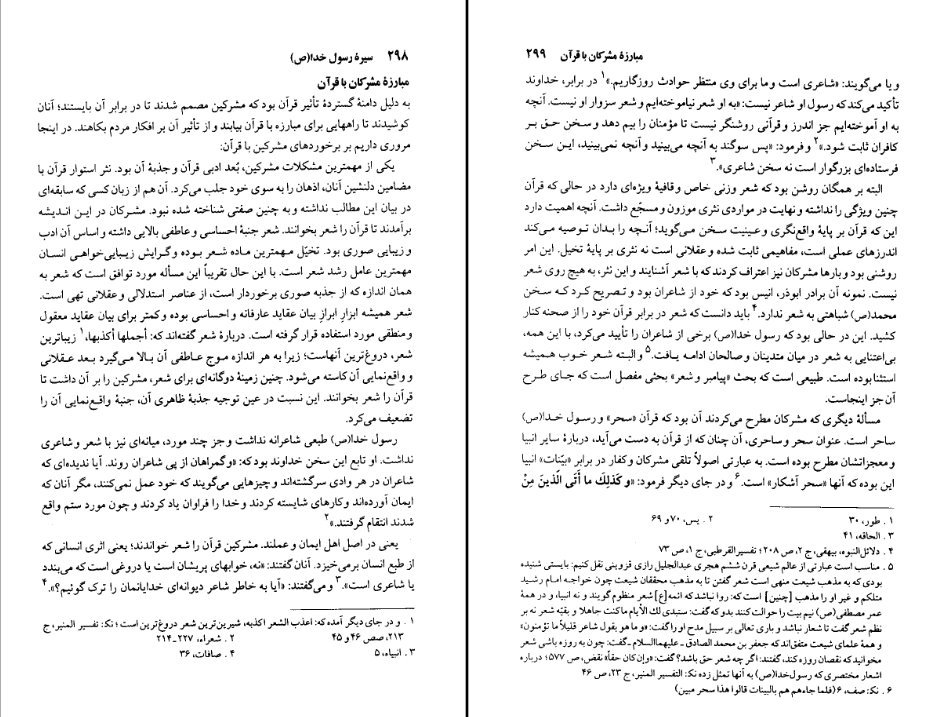 ۲۹۸ سیرهٔ رسول خدا(ص)
مبارزهٔ مشرکان با قرآن
به دلیل دامنهٔ گستردهٔ تأثیر قرآن بود که مشرکین مصمم شدند تا در برابر آن بایستند؛ آنان
کوشیدند تا راههایی برای مبارزه با قرآن بیابند و از تأثیر آن بر افکار مردم بکاهند. در اینجا
مروری داریم بر برخوردهای مشرکین با قرآن:
یکی از مهمترین مشکلات مشرکین، بُعد ادبی قرآن و جذبهٔ آن بود. نثر استوار قرآن با
مضامین دلنشین آنان، اذهان را به سوی خود جلب می‌کرد. آن هم از زبان کسی که سابقه‌ای
در بیان این مطالب نداشته و به چنین صفتی شناخته شده نبود. مشرکان در این اندیشه
برآمدند تا قرآن را شعر بخوانند. شعر جنبهٔ احساسی و عاطفی بالایی داشته و اساس آن ادب
و زیبایی صوری بود. تخیّل مهمترین مادهٔ شعر بوده و گرایش زیبایی‌خواهی انسان
مهمترین عامل رشد شعر است. با این حال تقریباً این مسأله مورد توافق است که شعر به
همان اندازه که از جذبه صوری برخوردار است، از عناصر استدلالی و عقلانی تهی است.
شعر همیشه ابزار ابراز بیان عقاید عارفانه و احساسی بوده و کمتر برای بیان عقاید معقول
و منطقی مورد استفاده قرار گرفته است. دربارهٔ شعر گفته‌اند که: أجملها أکذبها،۱ زیباترین
شعر، دروغ‌ترین آنهاست؛ زیرا به هر اندازه موج عاطفی آن بالا می‌گیرد بعد عقلانی
و واقع‌نمایی آن کاسته می‌شود. چنین زمینهٔ دوگانه‌ای برای شعر، مشرکین را بر آن داشت تا
قرآن را شعر بخوانند. این نسبت در عین توجیه جذبهٔ ظاهری آن، جنبهٔ واقع‌نمایی آن را
تضعیف می‌کرد.
رسول خدا(ص) طبعی شاعرانه نداشت و جز چند مورد، میانه‌ای نیز با شعر و شاعری
نداشت. او تابع این سخن خداوند بود که: «و گمراهان از پی شاعران روند. آیا ندیده‌ای که
شاعران در هر وادی سرگشته‌اند و چیزهایی می‌گویند که خود عمل نمی‌کنند، مگر آنان که
ایمان آورده‌اند و کارهای شایسته کردند و خدا را فراوان یاد کردند و چون مورد ستم واقع
شدند انتقام گرفتند.»۲
یعنی در اصل اهل ایمان و عملند. مشرکین قرآن را شعر خواندند؛ یعنی اثری انسانی که
از طبع انسان برمی‌خیزد. آنان گفتند: «نه، خوابهای پریشان است یا دروغی است که می‌بندد
یا شاعری است»۳ و می‌گفتند: «آیا به خاطر شاعر دیوانه‌ای خدایانمان را ترک گوئیم؟».۴
۱ . و در جای دیگر آمده که: اعذب الشعر اکذبه، شیرین‌ترین شعر دروغ‌ترین است؛ نک: تفسیر المنیر، ج
۲۱۳، صص ۴۶ و ۴۵
۲ . شعراء، ۲۲۷-۲۱۴
۳ . انبیاء، ۵
۴ . صافات، ۳۶
مبارزهٔ مشرکان با قرآن ۲۹۹
و یا می‌گویند: «شاعری است و ما برای وی منتظر حوادث روزگاریم.»۱ در برابر، خداوند
تأکید می‌کند که رسول او شاعر نیست: «به او شعر نیاموخته‌ایم و شعر سزوار او نیست. آنچه
به او آموخته‌ایم جز اندرز و قرآنی روشنگر نیست تا مؤمنان را بیم دهد و سخن حق بر
کافران ثابت شود.»۲ و فرمود: «پس سوگند به آنچه می‌بینید و آنچه نمی‌بینید، این سخن
فرستاده‌ای بزرگوار است نه سخن شاعری».۳
البته بر همگان روشن بود که شعر وزنی خاص و قافیهٔ ویژه‌ای دارد در حالی که قرآن
چنین ویژگی را نداشته و نهایت در مواردی نثری موزون و مسجّع داشت. آنچه اهمیت دارد
این که قرآن بر پایهٔ واقع‌نگری و عینیت سخن می‌گوید؛ آنچه را بدان توصیه می‌کند
اندرزهای عملی است، مفاهیمی ثابت شده و عقلانی است نه نثری بر پایهٔ تخیل. این امر
روشنی بود و بارها مشرکان نیز اعتراف کردند که با شعر آشنایند و این نثر، به هیچ روی شعر
نیست. نمونه آن برادر ابوذر، انیس بود که خود از شاعران بود و تصریح کرد که سخن
محمد(ص) شباهتی به شعر ندارد.۴ باید دانست که شعر در برابر قرآن خود را از صحنه کنار
کشید. این در حالی بود که رسول خدا(ص) برخی از شاعران را تأیید می‌کرد، با این همه،
بی‌اعتنایی به شعر در میان متدینان و صالحان ادامه یافت.۵ و البته شعر خوب همیشه
استثنا بوده است. طبیعی است که بحث «پیامبر و شعر» بحثی مفصل است که جای طرح
آن جز اینجاست.
مسألهٔ دیگری که مشرکان مطرح می‌کردند آن بود که قرآن «سحر» و رسول خدا(ص)
ساحر است. عنوان سحر و ساحری، آن چنان که از قرآن به دست می‌آید، دربارهٔ سایر انبیا
و معجزاتشان مطرح بوده است. به عبارتی اصولاً تلقی مشرکان و کفار در برابر «بیّنات» انبیا
این بوده که آنها «سحر آشکار» است.۶ و در جای دیگر فرمود: «وَ کَذلِكَ ما أتَی الَّذینَ مِنْ
۱ . طور، ۳۰
۲ . یس، ۷۰ و ۶۹
۳ . الحاقه، ۴۱
۴ . دلائل‌النبوه، بیهقی، ج ۲، ص ۲۰۸؛ تفسیرالقرطبی، ج ۱، ص ۷۳
۵ . مناسب است عبارتی از عالم شیعی قرن ششم هجری عبدالجلیل رازی قزوینی نقل کنیم: بایستی شنیده
بودی که به مذهب شیعت منهی است شعر گفتن تا به مذهب محققان شیعت چون خواجه امام رشید
متلکم و غیر او را مذهب [چنین] است که: روا نباشد که ائمه[ع] شعر منظوم گویند و نه انبیا، و در همهٔ
عمر مصطفی(ص) نیم بیت را حوالت کنند بدو که گفت: ستبدی لك الأیام ماکنت جاهلا و بقیّه شعر نه بر
نظم شعر گفت تا شعار نباشد و باری تعالی بر سبیل مدح او را گفت: «و ما هو بقول شاعر قلیلاً ما تؤمنون»
و همهٔ علمای شیعت متفق‌اند که جعفر بن محمد الصادق ـ علیهماالسلام ـ گفت: چون به روزه باشی شعر
مخوانید که نقصان روزه کند، گفتند: اگر چه شعر حق باشد؟ گفت: «وإن کان حقاً» نقض، ص ۵۷۷؛ درباره
اشعار مختصری که رسول‌خدا(ص) به آنها تمثل زده نک: التفسیر المنیر، ج ۲۳، ص ۴۶
۶ . نک: صف، ۶ (فلما جاءهم هم بالبینات قالوا هذا سحر مبین)